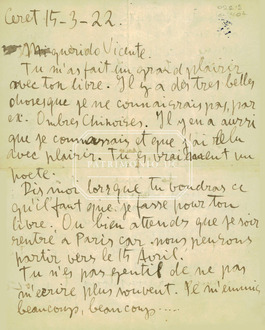 Ceret 15-3-22.
Mi querido Vicente.
Tu m'as fait un grand plaisir
avec ton libre. Il y a des tres belles
choses que je ne connaissais pas, par
ex. Ombres Chinoises. Il y en a aussi
que je connaissais et que j'ai relu
avec plaisir. Tu es vraiment un
poete.
Dis moi lorsque tu voudras ce
qu'il faut que je fasse pour ton
libre. Ou bien attends que je soit
rentré a Paris car nous pensons
partir vers le 15 Avril.
Tu n'es pas gentil de ne pas
m'ecrire plus souvent. Je m'ennuie
beaucoup, beaucoup....